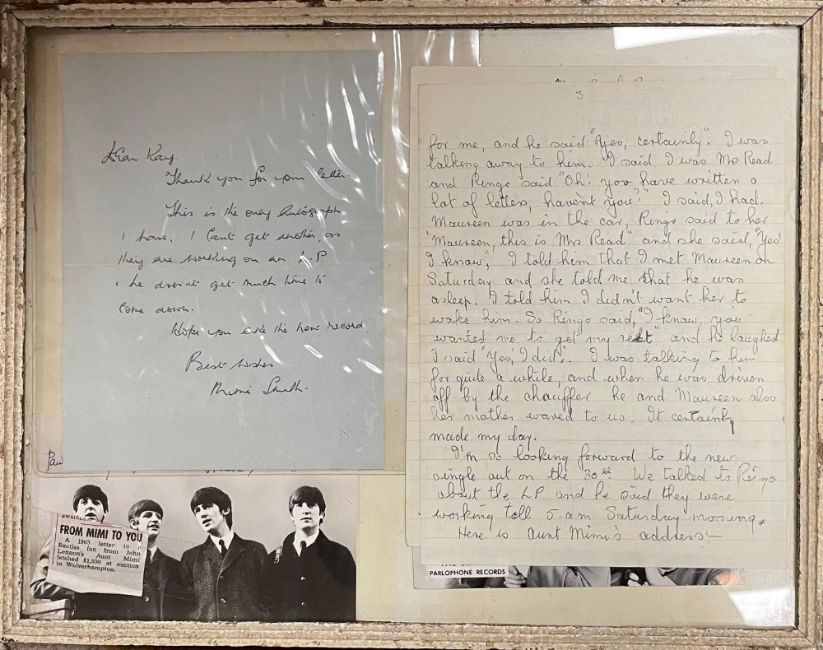 Dear Kay.
Thank you for your letter.
This is the only Autograph
I have. I Can't get another, as
they are working on an L.P
& he doesn't get much time to
come down.
Hope you like the new record.
Best wishes
Mimi Smith.
3
for me, and he said "Yes, certainly". I was
talking away to him. I said I was Mrs Read
and Ringo said "Oh! you have written a
lot of letters, haven't you?" I said, I had.
Maureen was in the car, Ringo said to her
"Maureen, this is Mrs Read" and she said, "Yes
I know", I told him that I met Maureen on
Saturday and she told me that he was
asleep. I told him I didn't want her to
wake him. So Ringo said, "I know, you
wanted me to get my rest" and he laughed
I said "Yes, I did". I was talking to him
for quite a while, and when he was driven
off by the chauffer he and Maureen also
her mother waved to us. It certainly
made my day.
I'm so looking forward to the new
single out on the 30th. We talked to Ringo
about the LP and he said they were
working till 5 am Saturday morning.
Here is aunt Mimi's address:—
FROM MIMI TO YOU
A 1963 letter to a
Beatles fan from John
Lennon's Aunt Mimi
fetched £1,300 at auction
in Wolverhampton.
PARLOPHONE RECORDS